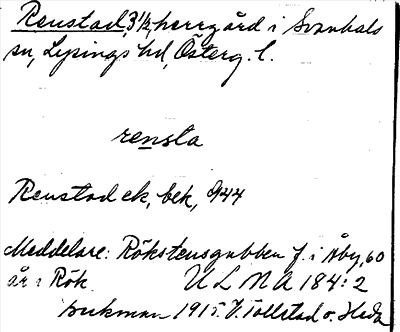 Renstad, 3 1/2, herrgård i Svanhals
sn, Lysings hd, Österg. l.
rensta
Renstad ek, bek, 944
Meddelare: Rökstensgubben f. i Åby, 60
år i Rök. ULMA 184:2
1915. V. Tollstad o. Heda